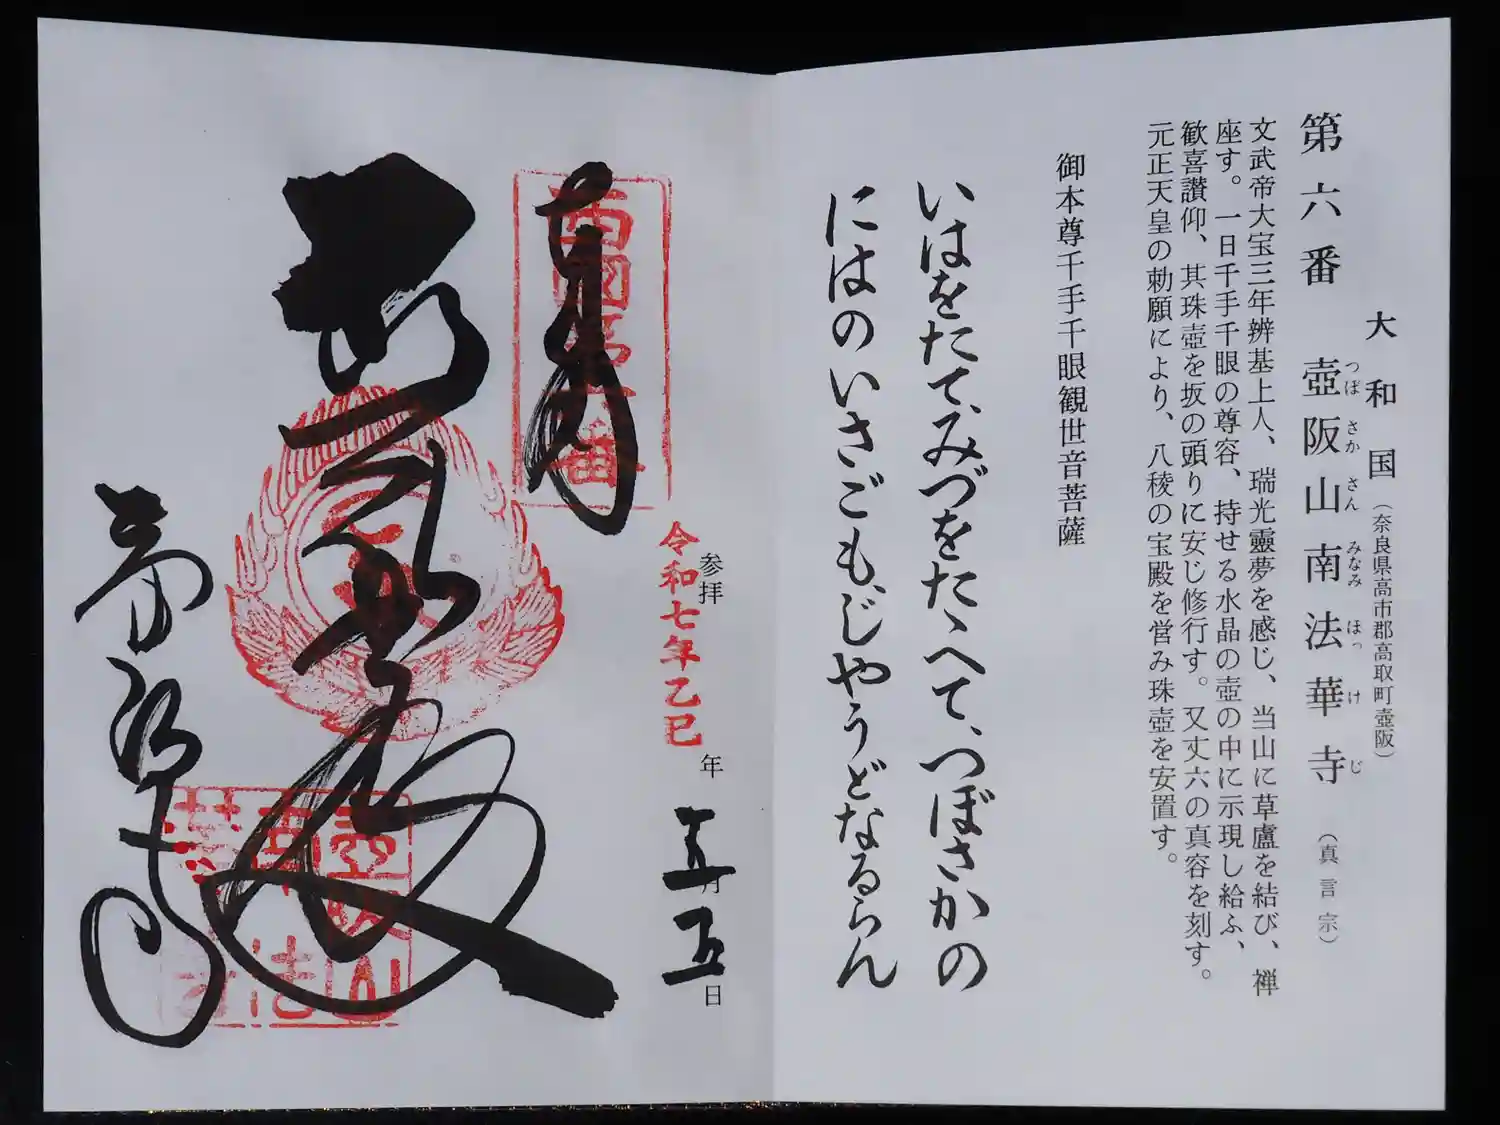 大和国（奈良県高市郡高取町壺阪）
第六番 壺阪山南法華寺（真言宗）
つぼ さか さん みなみ ほっ け じ
文武帝大宝三年辨基上人、瑞光靈夢を感じ、当山に草盧を結び、禅
座す。一日千手千眼の尊容、持せる水晶の壺の中に示現し給ふ、
歓喜讃仰、其珠壺を坂の頭りに安じ修行す。又丈六の真容を刻す。
元正天皇の勅願により、八稜の宝殿を営み珠壺を安置す。
御本尊千手千眼観世音菩薩
いはをたて、みづをたゝへて、つぼさかの
にはのいさごも、じやうどなるらん
参拝
令和七年乙巳年
五月五日
西國第六番
奉拝
普照殿
南法華寺
壺阪山南法華寺